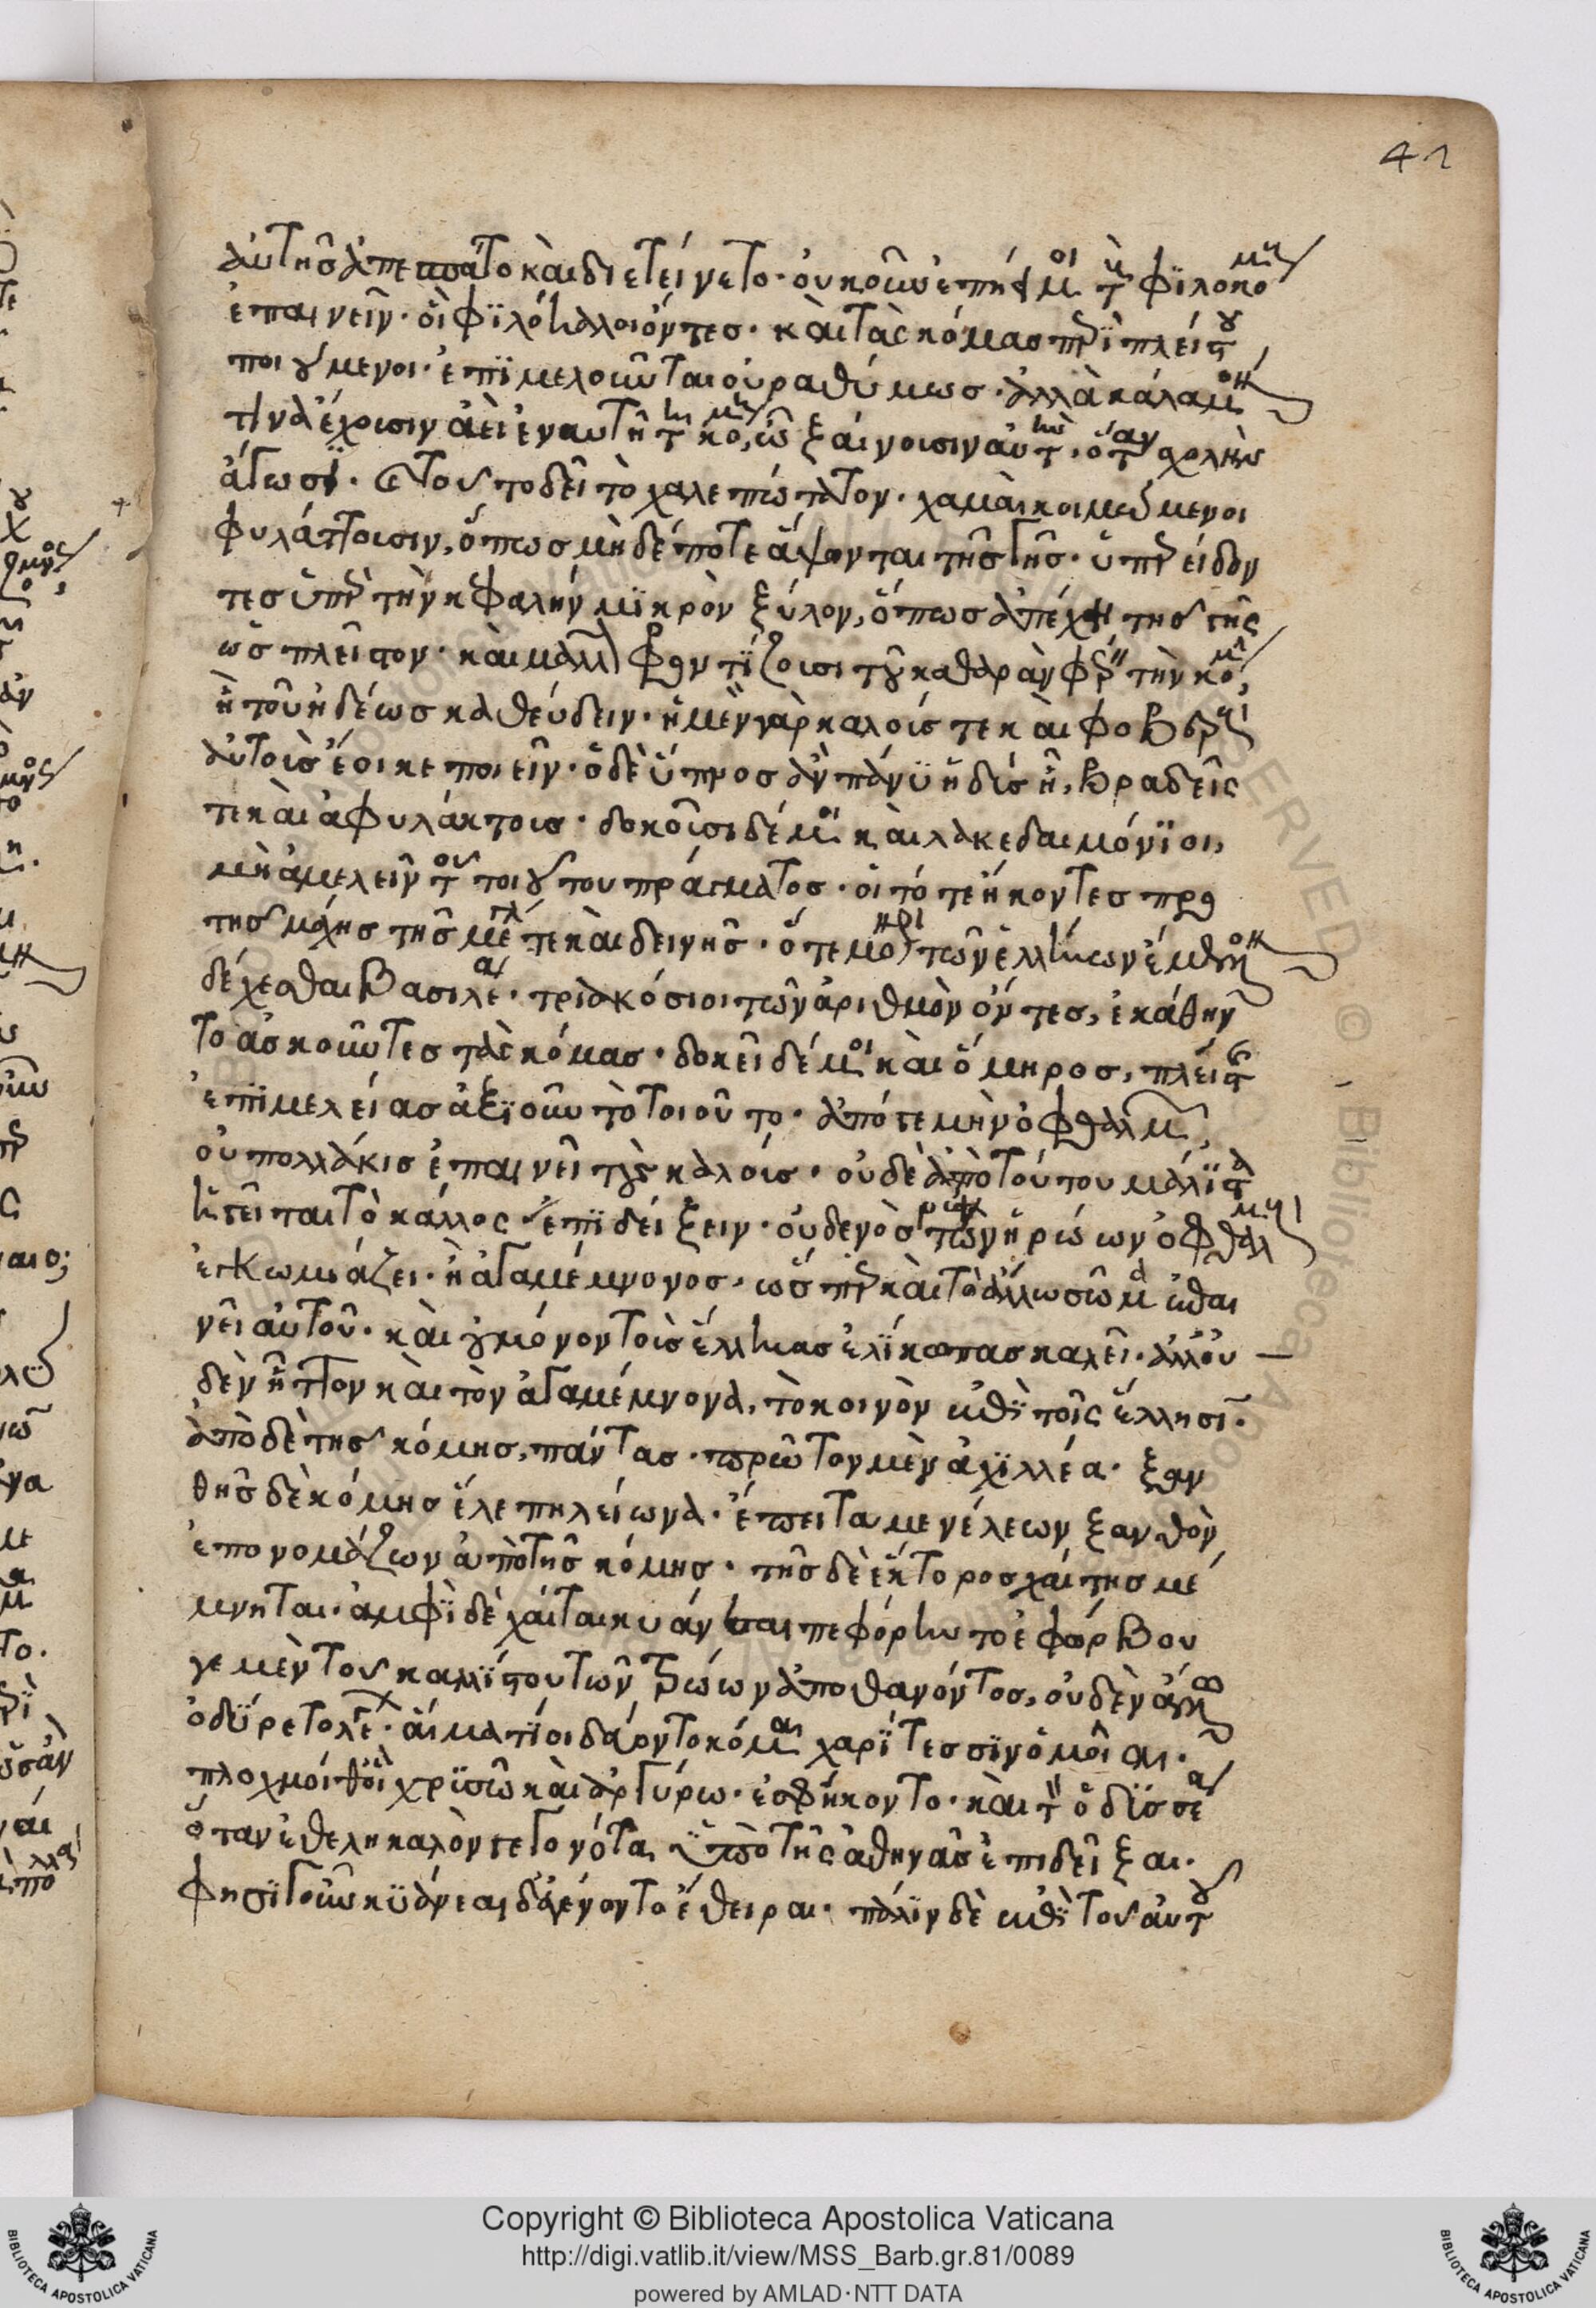 41
αὐτῆς ἀπεπαύσατο καὶ διετείνετο· οὐκοῦν ἐπῄει μοι τοὺς φιλοκόμους
ἐπαινεῖν· οἳ φιλόκαλοι ὄντες· καὶ τὰς κόμας περὶ πλείστου
ποιούμενοι· ἐπιμελοῦνται οὐ ῥαθύμως· ἀλλὰ κάλαμόν
τινα ἔχουσιν ἀεὶ ἐν αὐτῇ τῇ κόμῃ, ᾧ ξαίνουσιν αὐτὴν· ὅταν σχολὴν
ἄγωσι· καὶ τοῦτο δεῖ τὸ χαλεπώτατον· χαμαὶ κοιμώμενοι
φυλάττουσιν, ὅπως μηδέποτε ἅψονται τῆς γῆς· ὑπερείδον
τες ὑπὲρ τὴν κεφαλὴν μικρὸν ξύλον, ὅπως ἀπέχῃ τῆς γῆς
ὡς πλεῖστον· καὶ μᾶλλον φροντίζουσι τοῦ καθαρὰν φέρειν τὴν κόμην,
ἢ τοῦ ἡδέως καθεύδειν· ἡ μὲν γὰρ καλούς τε καὶ φοβεροὺς
αὐτοὺς ἔοικε ποιεῖν· ὁ δὲ ὕπνος ἂν πάνυ ἡδὺς ᾖ, βραδεῖς
τε καὶ ἀφυλάκτους· δοκοῦσι δέ μοι καὶ λακεδαιμόνιοι,
μὴ ἀμελεῖν τοῦ τοιούτου πράγματος· οἳ τότε ἥκοντες πρὸ
τῆς μάχης τῆς μεγάλης τε καὶ δεινῆς· ὅτε μόνοι τῶν ἑλλήνων ἔμελλον
δέχεσθαι βασιλέα· τριακόσιοι τῶν ἀριθμὸν ὄντες, ἐκάθην
το ἀσκοῦντες τὰς κόμας· δοκεῖ δέ μοι καὶ ὅμηρος, πλείστης
ἐπιμελείας ἀξιοῦν τὸ τοιοῦτο· ἀπό γε μὴν ὀφθαλμῶν,
οὐ πολλάκις ἐπαινεῖ τοὺς καλούς· οὐδὲ ἀπὸ τούτου μάλιστα
ἡγεῖται τὸ κάλλος ἐπιδείξειν· οὐδενὸς τῶν ἡρώων ὀφθαλμοὺς
ἐγκωμιάζει· ἢ ἀγαμέμνονος· ὥσπερ καὶ τὸ ἄλλως σῶμα ἐπαι
νεῖ αὐτοῦ· καὶ οὐ μόνον τοὺς ἕλληνας ἑλίκωπας καλεῖ· ἀλλ' οὐ
δὲν ἧττον καὶ τὸν ἀγαμέμνονα, τὸ κοινὸν ἐπὶ τοῖς ἕλλησι·
ἀπὸ δὲ τῆς κόμης, πάντας· πρῶτον μὲν ἀχιλλέα· ξαν
θῆς δὲ κόμης ἕλε πηλείωνα· ἔπειτα μενέλεων ξανθὸν
ἐπονομάζων ἀπὸ τῆς κόμης· τῆς δὲ ἕκτορος χαίτης μέ
μνηται· ἀμφὶ δὲ χαῖται κυάνεαι πεφόρηντο εὐφόρβου
γε μὴν τοῦ καλλίστου τῶν τρώων ἀποθανόντος, οὐδὲν ἄλλο
ὀδύρετο λέγων· αἵματί οἱ δεύοντο κόμαι χαρίτεσσιν ὁμοῖαι·
πλοχμοί θ' οἳ χρυσῷ καὶ ἀργύρῳ· ἐσφήκοντο· καὶ τὸν ὀδυσσέα
ὅταν ἐθέλῃ καλὸν γεγονότα ὑπὸ τῆς ἀθηνᾶς ἐπιδεῖξαι·
φησὶ γοῦν κυάνεαι δ' ἐγένοντο ἔθειραι· πάλιν δὲ ἐπὶ τοῦ αὐτοῦ
Copyright © Biblioteca Apostolica Vaticana
http://digi.vatlib.it/view/MSS_Barb.gr.81/0089
powered by AMLAD·NTT DATA